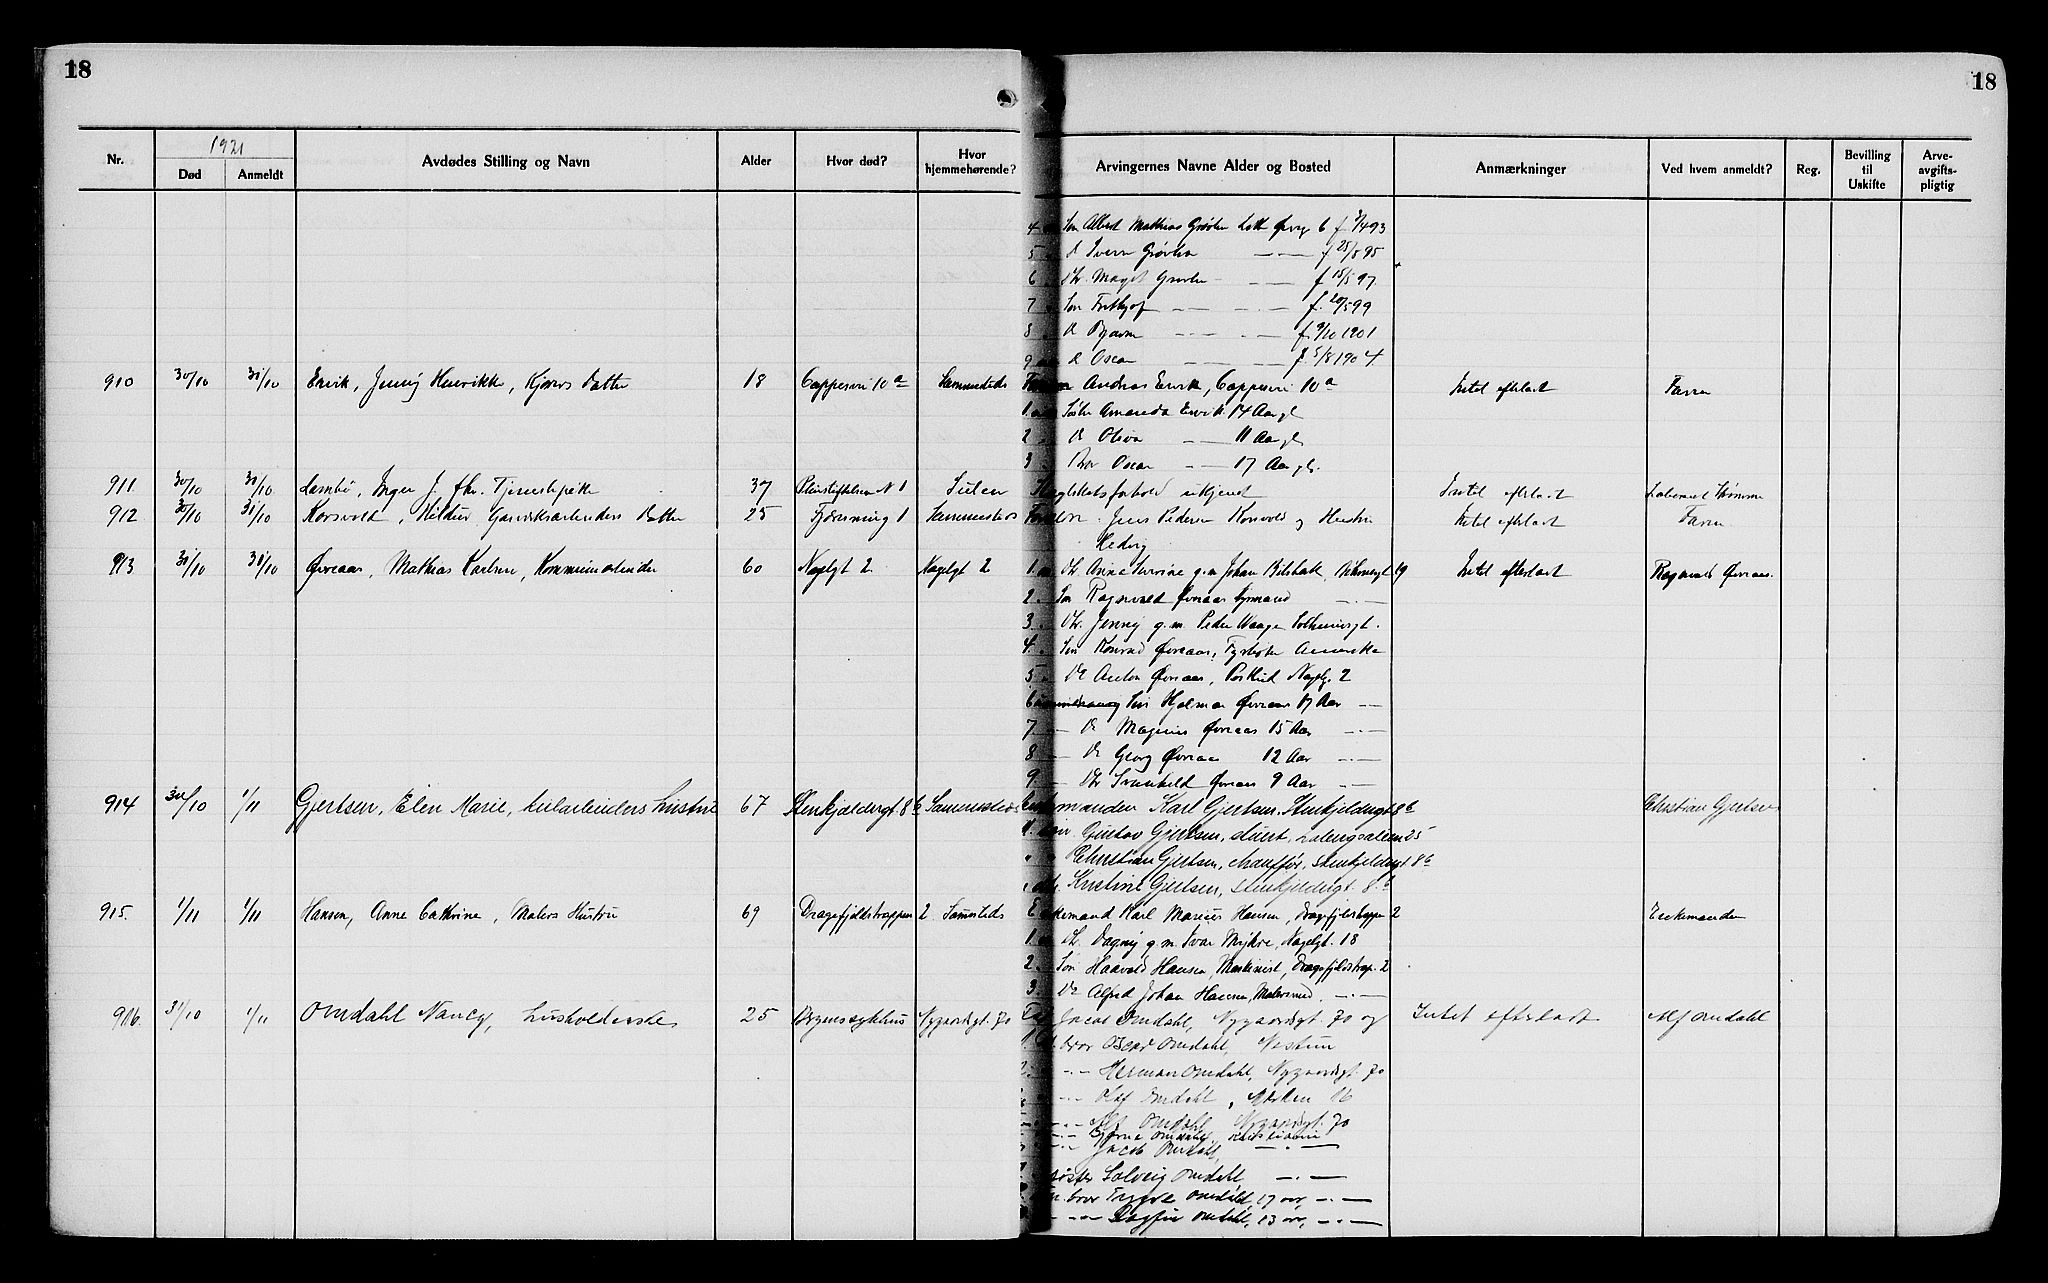 18
18
1921
Nr.
Død
Anmeldt
Avdødes Stilling og Navn
Alder
Hvor død?
Hvor hjemmehørende?
Arvingernes Navne Alder og Bosted
Anmærkninger
Ved hvem anmeldt?
Reg.
Bevilling til Uskifte
Arve-avgifts-pligtig
4 Søn Albert Mathias Grøvlen 6 f
5 Grøvlen — f 25/5 95
6 Dtr. Magit Grøvlen — f 15/5 97
7 Søn Fritkjof — f. 20/5 99
8 Bjarne — f 9/10 1901
9 Oscar — f. 5/8 1904
910 30/10 31/10 Ervik, Jenny Henrikke, Kjørers Datter 18 Cappesvei 10a Sammesteds Andreas Ervik, Cappesvei 10a Intet efterladt Faren
1 Søster Amanda Ervik 14 Aar gl
2 Oliva — 11 Aar gl
3 Bror Oscar — 17 Aar gl.
911. 30/10 31/10 Inger J. fhv. Tjenestepike 37 Pleiestiftelsen N 1 Sulen ukjendt Intet efterladt
912 30/10 31/10 Korsvold, Hildur, Garveriarbeiders Datter 25 1 Sammesteds Jens Pedersen Korsvold og Hustru Intet efterladt Faren
Hedvig
913 31/10 31/10 Øvreaas, Mathias Karlsen, Kommunearbeider 60 Nagelgt 2 Nagelgt 2 1. Dtr. Anne Severine g.m. Johan 19 Intet efterladt Ragnvald Øvreaas.
2. Søn Ragnvald Øvreaas Sjømand —
3. Dtr. Jenny g.m. Peder Waage
4. Søn Konrad Øvreaas, Fyrbøter Amerika
5 Anton Øvreaas, Postbud Nagelg. 2
6 Søn Hjalmar Øvreaas 17 Aar —
7 — Magnus Øvreaas 15 Aar —
8 — Georg Øvreaas 12 Aar —
9. — Dtr Svanhild Øvreaas 9 Aar —
914 30/10 1/11 Gjertsen, Elen Marie, hustru 67 Stenkjeldergt. 8b Sammesteds Enkemanden Karl Gjertsen, Stenkjeldergt 8b Christian Gjertsen
Gustav Gjertsen, stuert, 25
" " Christian Gjertsen, chauffør, Stenkjeldergt 8b
Kristine Gjertsen, Stenkjeldergt. 8.b
915. 1/11 1/11 Hansen, Anne Cathrine, Malers Hustru 69 Dragefjeldstrappen 2 Sammesteds Enkemand Karl Marius Hansen, Dragefjeldstrappen 2 Enkemanden
1. Dtr. Dagny g.m. Ivar Myhre, Nagelgt. 18
2. Søn Haavald Hansen, Maskinist, Dragefjeldstrap. 2
3. Alfred Johan Hansen, Malersvend, —
916. 31/10 1/11 Omdahl Nancy, husholderske 25 Bergens sykehus Nygaardsgt. 70 Jacob Omdahl, Nygaardsgt. 70 og Intet efterladt Alf Omdahl
1. bror Oscar Omdahl, Nestun
2. — Herman Omdahl, Nygaardsgt. 70
— Olaf Omdahl, 16
— Alf Omdahl Nygaardsgt. 70
— Bjarne Omdahl,
— Jacob Omdahl, —
søster Solveig Omdahl, —
bror Trygve Omdahl, 17 aar, —
— Dagfin Omdahl, 13 aar, —